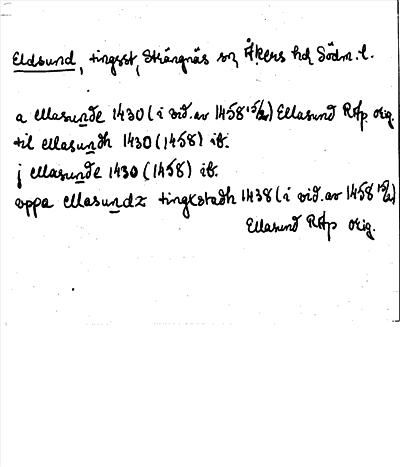 Eldsund, tingsst, Strängnäs sn, Åkers hd, Södm. l.
a ellasunde 1430 (i vid. av 1458 15/2) Ellasund RAp orig.
til ellasundh 1430 (1458) ib.
j ellasunde 1430 (1458) ib.
oppa ellasundz tingxstadh 1438 (i vid. av 1458 15/2)
Ellasund RAp orig.